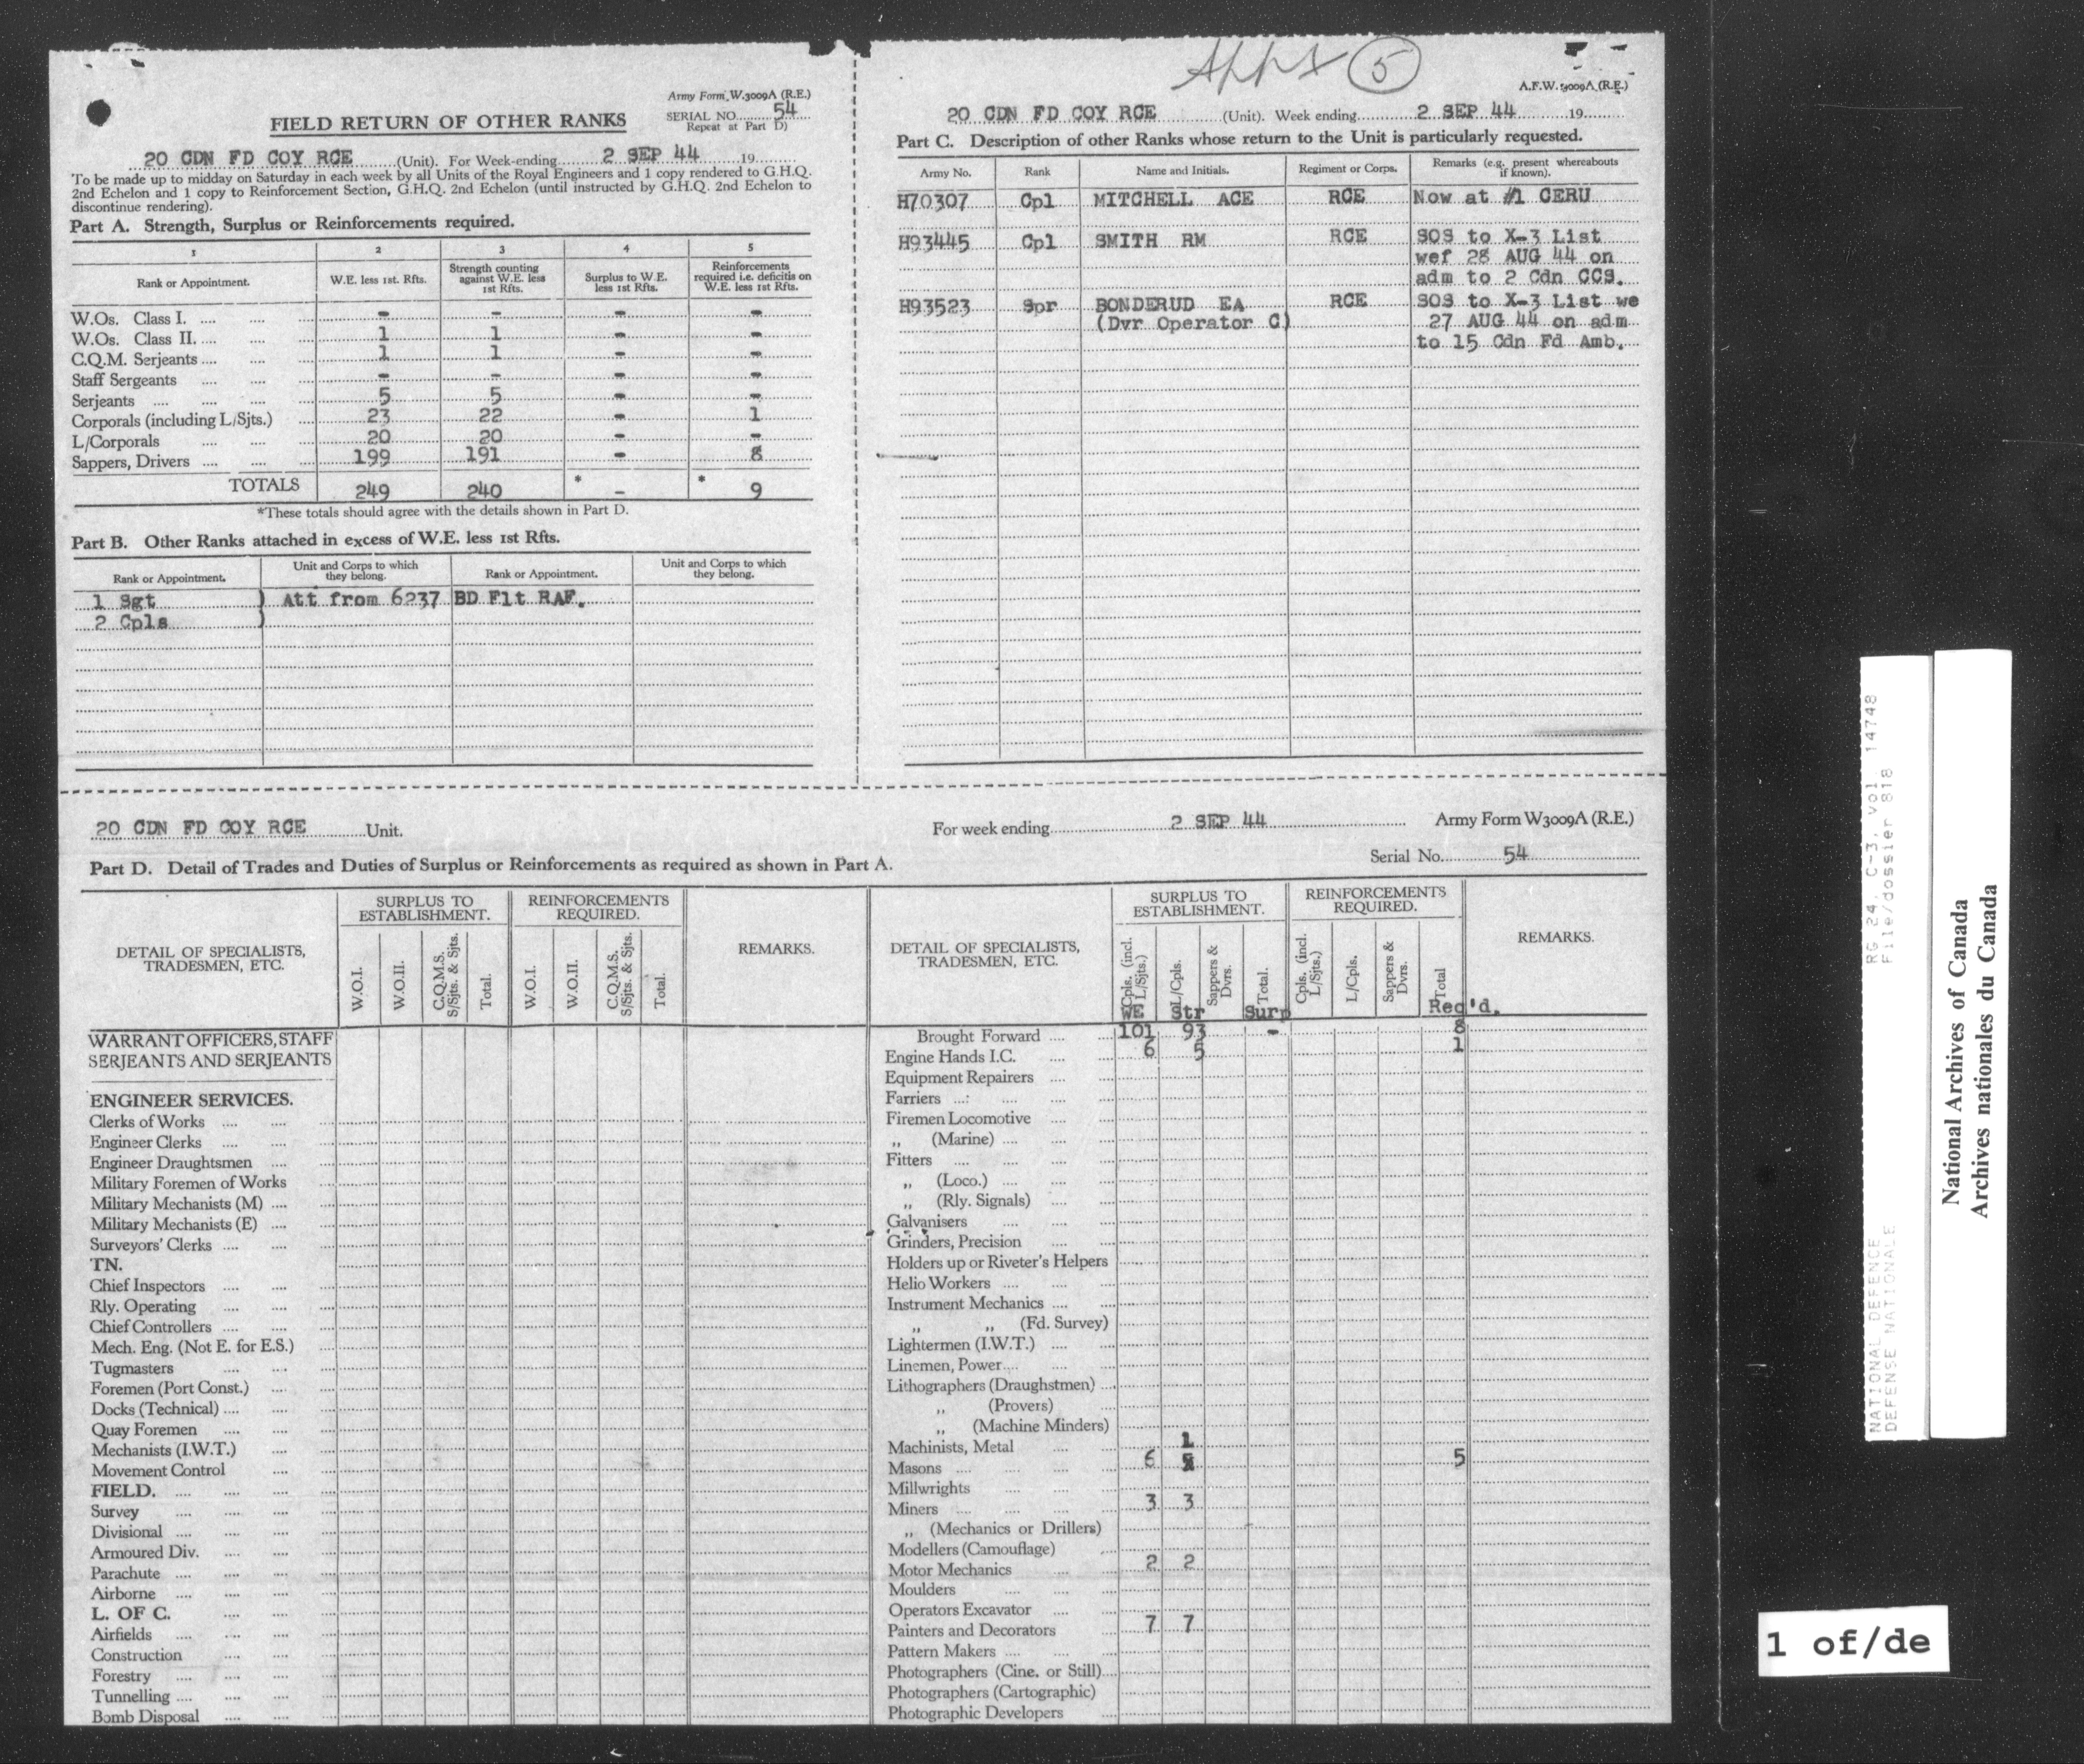 Army Form W.3009A (R.E.)
SERIAL NO. 54
Repeat at Part D)
FIELD RETURN OF OTHER RANKS
20 CDN FD COY RCE (Unit). For Week-ending 2 SEP 44 19
To be made up to midday on Saturday in each week by all Units of the Royal Engineers and 1 copy rendered to G.H.Q.
2nd Echelon and 1 copy to Reinforcement Section, G.H.Q. 2nd Echelon (until instructed by G.H.Q. 2nd Echelon to
discontinue rendering).
Part A. Strength, Surplus or Reinforcements required.
1 2 3 4 5
Rank or Appointment. W.E. less 1st. Rfts. Strength counting against W.E. less 1st Rfts. Surplus to W.E. less 1st Rfts. Reinforcements required i.e. deficitis on W.E. less 1st Rfts.
W.Os. Class I. .... .... - - - -
W.Os. Class II. .... .... 1 1 - -
C.Q.M. Serjeants .... .... 1 1 - -
Staff Sergeants .... .... - - - -
Serjeants .... .... .... 5 5 - -
Corporals (including L/Sjts.) .... 23 22 - 1
L/Corporals .... .... 20 20 - -
Sappers, Drivers .... .... .... 199 191 - 8
TOTALS 249 240 * - * 9
*These totals should agree with the details shown in Part D.
Part B. Other Ranks attached in excess of W.E. less 1st Rfts.
Rank or Appointment. Unit and Corps to which they belong. Rank or Appointment. Unit and Corps to which they belong.
1 Sgt ) Att from 6237 BD Flt RAF.
2 Cpls )
Appx 5
A.F.W. 3009A (R.E.)
20 CDN FD COY RCE (Unit). Week ending 2 SEP 44 19
Part C. Description of other Ranks whose return to the Unit is particularly requested.
Army No. Rank Name and Initials. Regiment or Corps. Remarks (e.g. present whereabouts if known).
H70307 Cpl MITCHELL ACE RCE Now at #1 CERU
H93445 Cpl SMITH RM RCE SOS to X-3 List
wef 28 AUG 44 on
adm to 2 Cdn CCS.
H93523 Spr BONDERUD EA RCE SOS to X-3 List we
(Dvr Operator C) 27 AUG 44 on adm
to 15 Cdn Fd Amb.
20 CDN FD COY RCE Unit. For week ending 2 SEP 44 Army Form W3009A (R.E.)
Serial No. 54
Part D. Detail of Trades and Duties of Surplus or Reinforcements as required as shown in Part A.
DETAIL OF SPECIALISTS, TRADESMEN, ETC.
SURPLUS TO ESTABLISHMENT.
REINFORCEMENTS REQUIRED.
REMARKS.
W.O.I. W.O.II. C.Q.M.S. S/Sjts. & Sjts. Total. W.O.I. W.O.II. C.Q.M.S. S/Sjts. & Sjts. Total.
WARRANT OFFICERS, STAFF
SERJEANTS AND SERJEANTS
ENGINEER SERVICES.
Clerks of Works .... ....
Engineer Clerks .... ....
Engineer Draughtsmen ....
Military Foremen of Works
Military Mechanists (M) ....
Military Mechanists (E) ....
Surveyors' Clerks .... ....
TN.
Chief Inspectors .... ....
Rly. Operating .... ....
Chief Controllers .... ....
Mech. Eng. (Not E. for E.S.)
Tugmasters .... ....
Foremen (Port Const.) ....
Docks (Technical) .... ....
Quay Foremen .... ....
Mechanists (I.W.T.) ....
Movement Control ....
FIELD. .... .... ....
Survey .... .... ....
Divisional .... .... ....
Armoured Div. .... ....
Parachute .... .... ....
Airborne .... .... ....
L. OF C. .... ....
Airfields .... .... ....
Construction .... ....
Forestry .... ....
Tunnelling .... .... ....
Bomb Disposal .... ....
DETAIL OF SPECIALISTS, TRADESMEN, ETC.
SURPLUS TO ESTABLISHMENT.
REINFORCEMENTS REQUIRED.
REMARKS.
Cpls. (incl. L/Sjts.) L/Cpls. Sappers & Dvrs. Total. Cpls. (incl. L/Sjts.) L/Cpls. Sappers & Dvrs. Total
WE Str Surp Req'd.
Brought Forward .... 101 93 - 8
Engine Hands I.C. .... 6 5 1
Equipment Repairers ....
Farriers .... .... ....
Firemen Locomotive ....
,, (Marine) .... ....
Fitters .... .... ....
,, (Loco.) .... ....
,, (Rly. Signals) ....
Galvanisers .... ....
Grinders, Precision ....
Holders up or Riveter's Helpers
Helio Workers .... ....
Instrument Mechanics .... ....
,, ,, (Fd. Survey)
Lightermen (I.W.T.) ....
Linemen, Power .... ....
Lithographers (Draughstmen) ....
,, (Provers)
,, (Machine Minders)
Machinists, Metal ....
Masons .... .... .... 6 1 5
Millwrights .... ....
Miners .... .... .... 3 3
,, (Mechanics or Drillers)
Modellers (Camouflage)
Motor Mechanics .... 2 2
Moulders .... ....
Operators Excavator ....
Painters and Decorators 7 7
Pattern Makers .... ....
Photographers (Cine. or Still) ....
Photographers (Cartographic)
Photographic Developers
RG 24, C-3, vol 14748
File/dossier 818
NATIONAL DEFENCE
DEFENSE NATIONALE
National Archives of Canada
Archives nationales du Canada
1 of/de